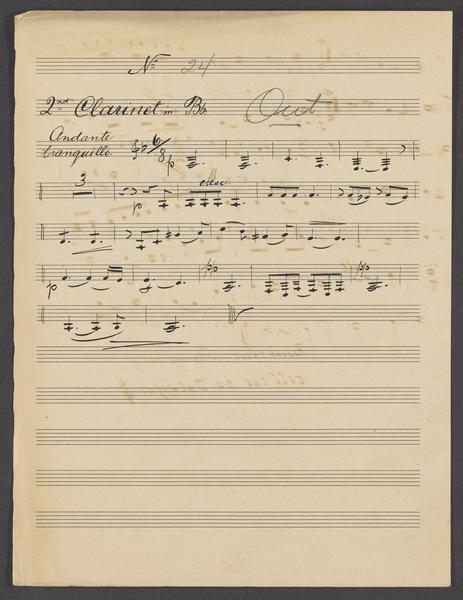 No 24
2nd Clarinet in Bb. Out
Andante
tranquillo. 6/8 p
3 p cresc
p pp pp